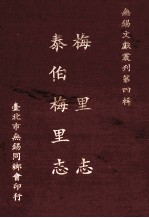 無錫文獻叢刊第四輯
梅里志
泰伯梅里志
臺北市無錫同鄉會印行